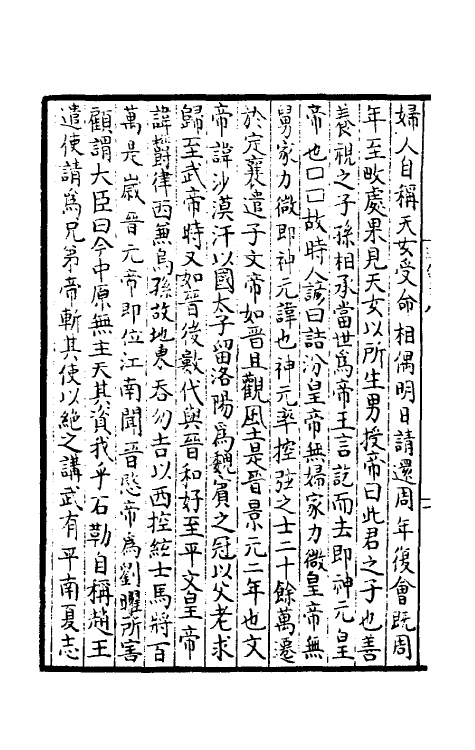 婦人自稱天女受命相偶明日請還周年復會既周
年至畋處果見天女以所生男授帝曰此君之子也善
養視之子孫相承當世爲帝王言訖而去即神元皇
帝也口口故時人諺曰詰汾皇帝無婦家力微皇帝無
舅家力微即神元諱也神元率控弦之士二十餘萬遷
於定襄遣子文帝如晉且觀風土是晉景元二年也文
帝諱沙漠汗以國太子留洛陽爲魏賓之冠以父老求
歸至武帝時又如晉後數代與晉和好至平文皇帝
諱欝律西兼烏孫故地東吞勿吉以西控絃士馬將百
萬是嵗晉元帝即位江南聞晉愍帝爲劉曜所害
顧謂大臣曰今中原無主天其資我乎石勒自稱趙王
遣使請爲兄弟帝斬其使以絶之講武有平南夏志